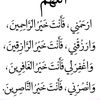 اللهم
ارحمني، فَأَنْتَ خَيْرُ الرَّاحِمِينَ،
وَارْزُقْنِي، فَأَنْتَ خَيْرُ الرَّازِقِينَ،
وَاغْفِرْ لِي فَأَنْتَ خَيْرُ الْغَافِرِينَ،
وَانْصُرْنِي، فَأَنْتَ خَيْرُ النَّاصِرِينَ،